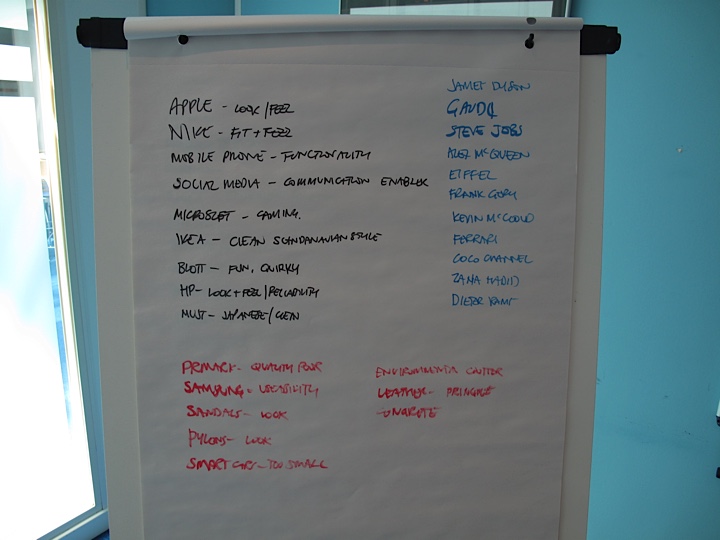 APPLE - LOOK/FEEL
NIKE - FIT + FEEL
MOBILE PHONE - FUNCTIONALITY
SOCIAL MEDIA - COMMUNICATION ENABLER
- GAMING.
IKEA - CLEAN SCANDANAVIAN STYLE
- FUN, QUIRKY
HP - LOOK + FEEL/RELIABILITY
MUJI - JAPANESE/CLEAN
JAMES DYSON
GAUDI
STEVE JOBS
ALEX McQUEEN
EIFFEL
FRANK GERY
KEVIN McCLOUD
FERRARI
COCO CHANNEL
ZAHA HADID
DIETER RAMS
PRIMARK - QUALITY POOR
SAMSUNG - USEABILITY
SANDALS - LOOK
PYLONS - LOOK
SMART CAR - TOO SMALL
LEATHER - PRINCIPLE
CONCRETE